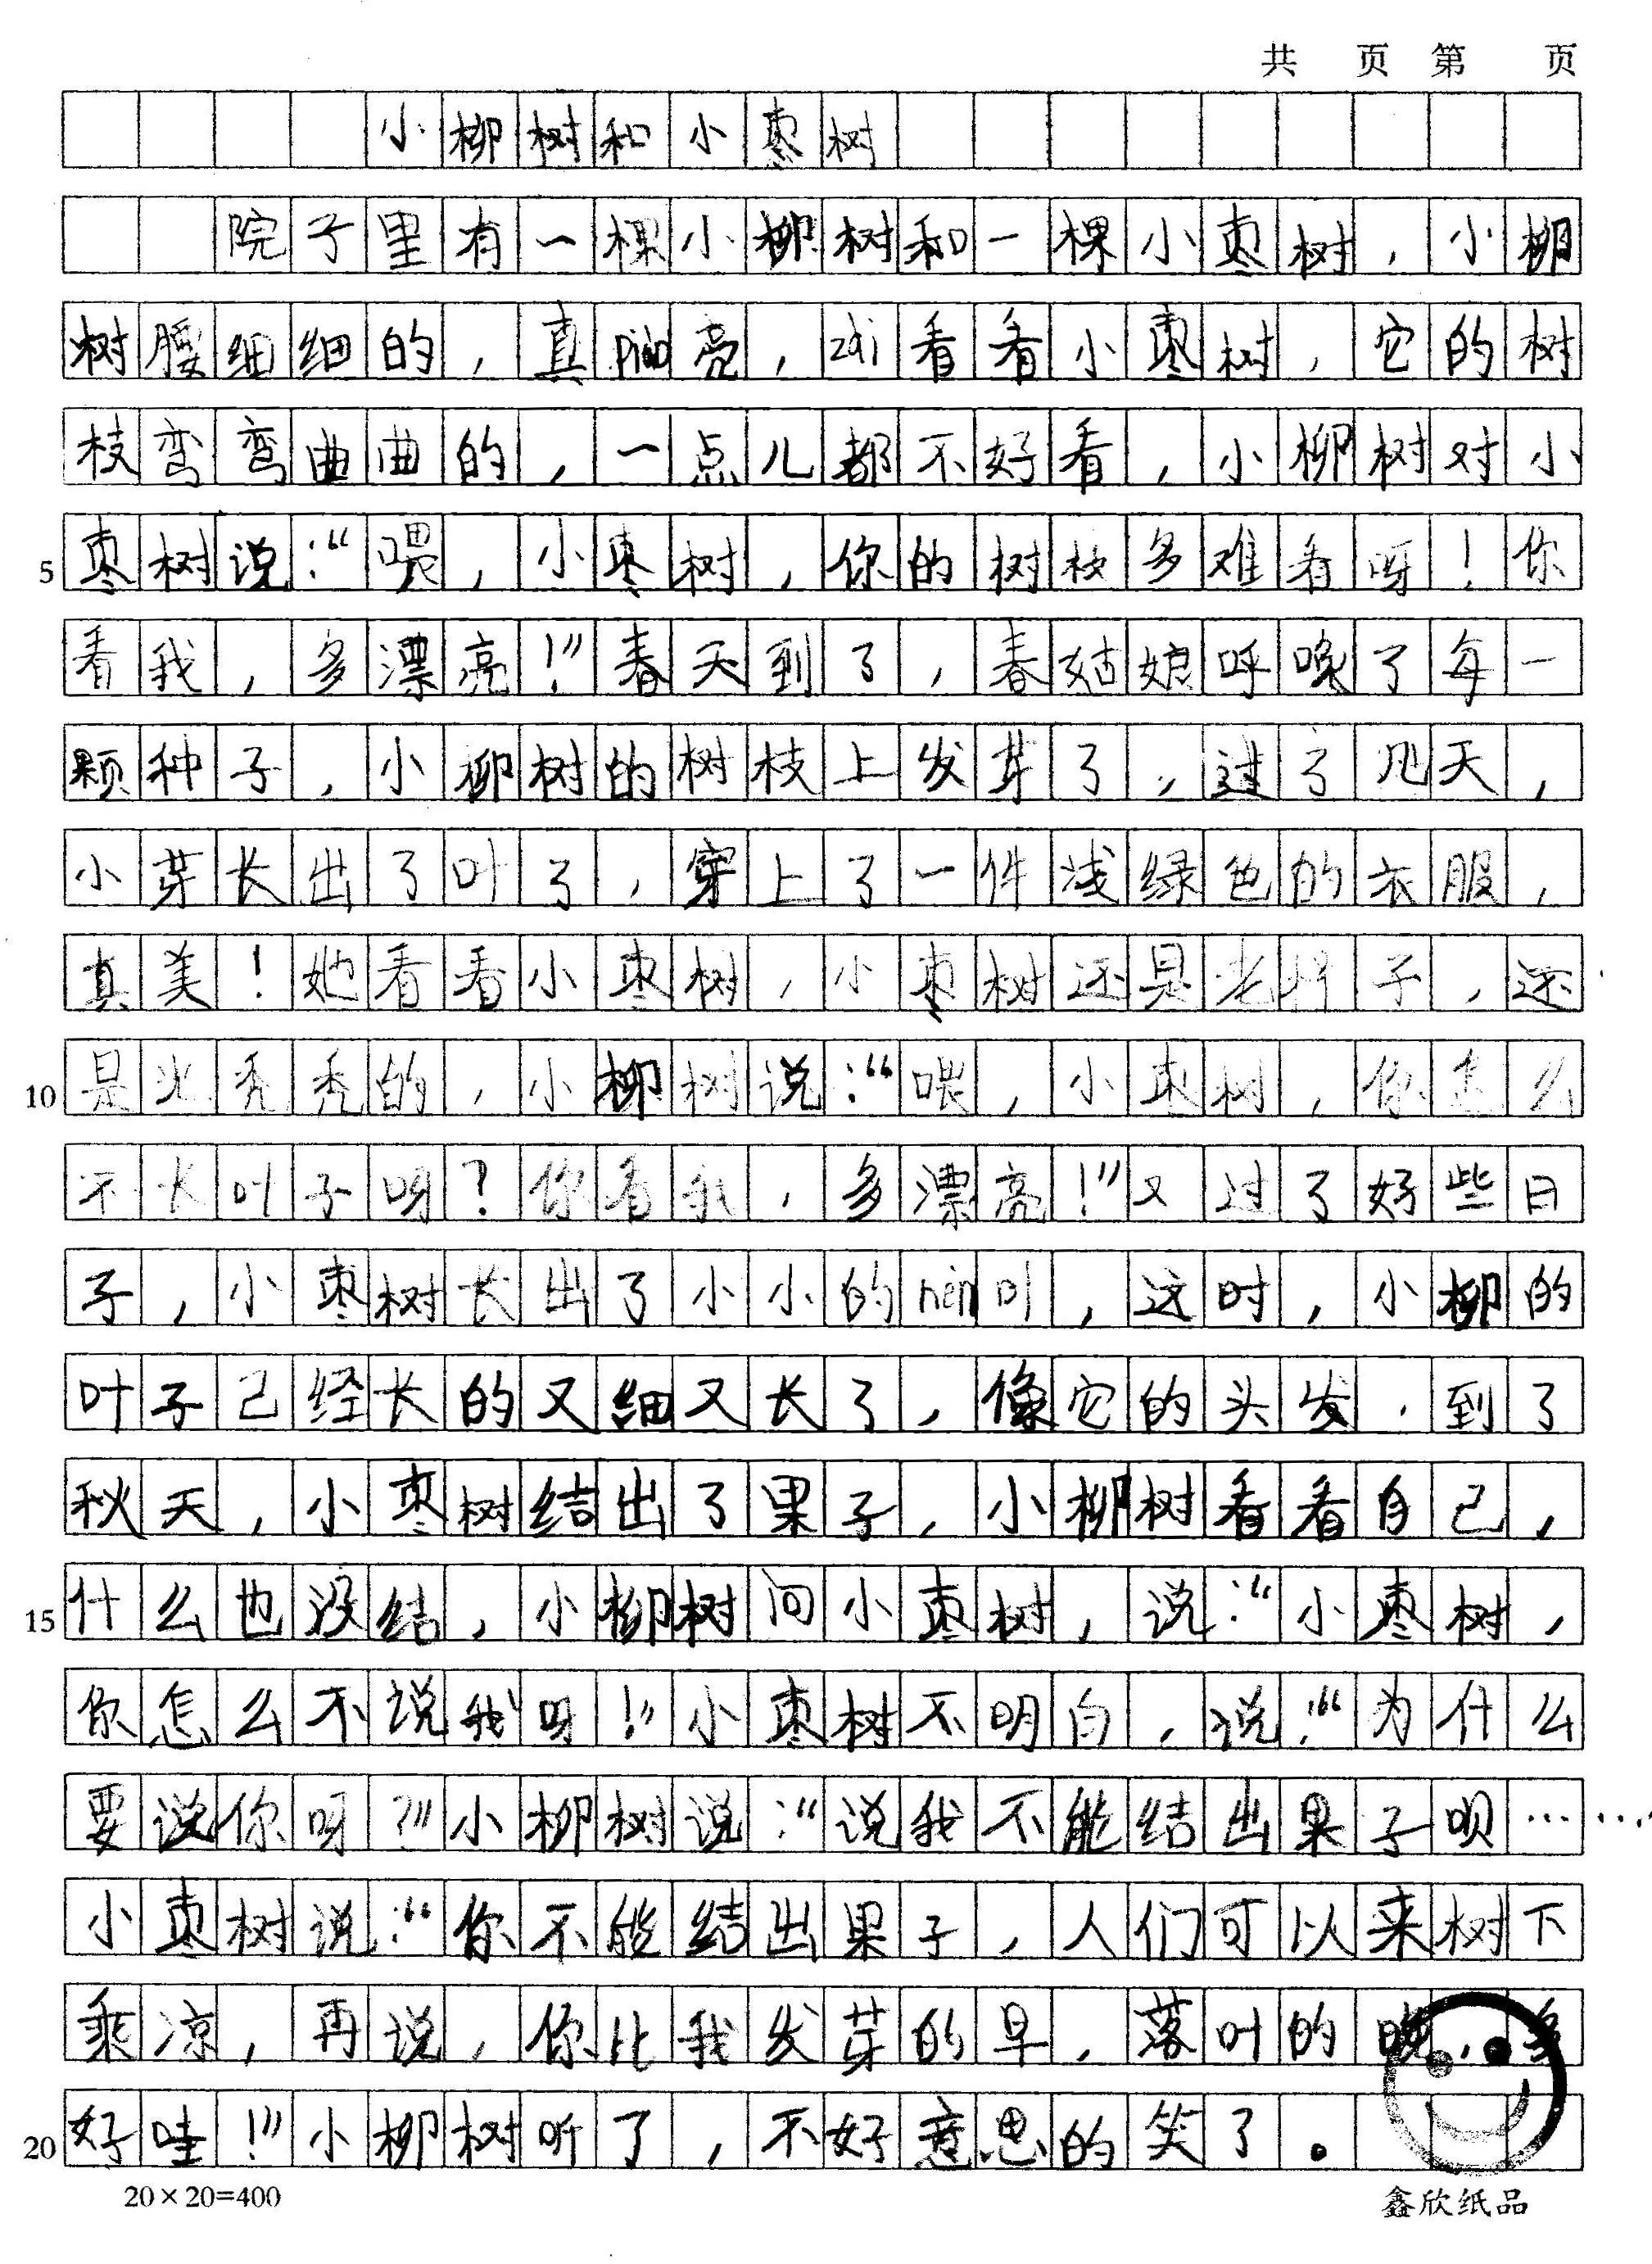 共 页 第 页
小柳树和小枣树
院子里有一棵小柳树和一棵小枣树，小柳
树腰细细的，真piào亮，zài看看小枣树，它的树
枝弯弯曲曲的，一点儿都不好看，小柳树对小
5 枣树说：“喂，小枣树，你的树枝多难看呀！你
看我，多漂亮！”春天到了，春姑娘呼唤了每一
颗种子，小柳树的树枝上发芽了，过了几天，
小芽长出了叶了，穿上了一件浅绿色的衣服，
真美！她看看小枣树，小枣树还是老样子，还
10 是光秃秃的，小柳树说：“喂，小枣树，你怎么
不长叶子呀？你看我，多漂亮！”又过了好些日
子，小枣树长出了小小的nèn叶，这时，小柳的
叶子己经长的又细又长了，像它的头发，到了
秋天，小枣树结出了果子，小柳树看看自己，
15 什么也没结，小柳树问小枣树，说：“小枣树，
你怎么不说我呀！”小枣树不明白，说：“为什么
要说你呀？”小柳树说：“说我不能结出果子呗……
小枣树说：“你不能结出果子，人们可以来树下
乘凉，再说，你比我发芽的早，落叶的晚，多
20 好哇！”小柳树听了，不好意思的笑了。
20×20=400 鑫欣纸品